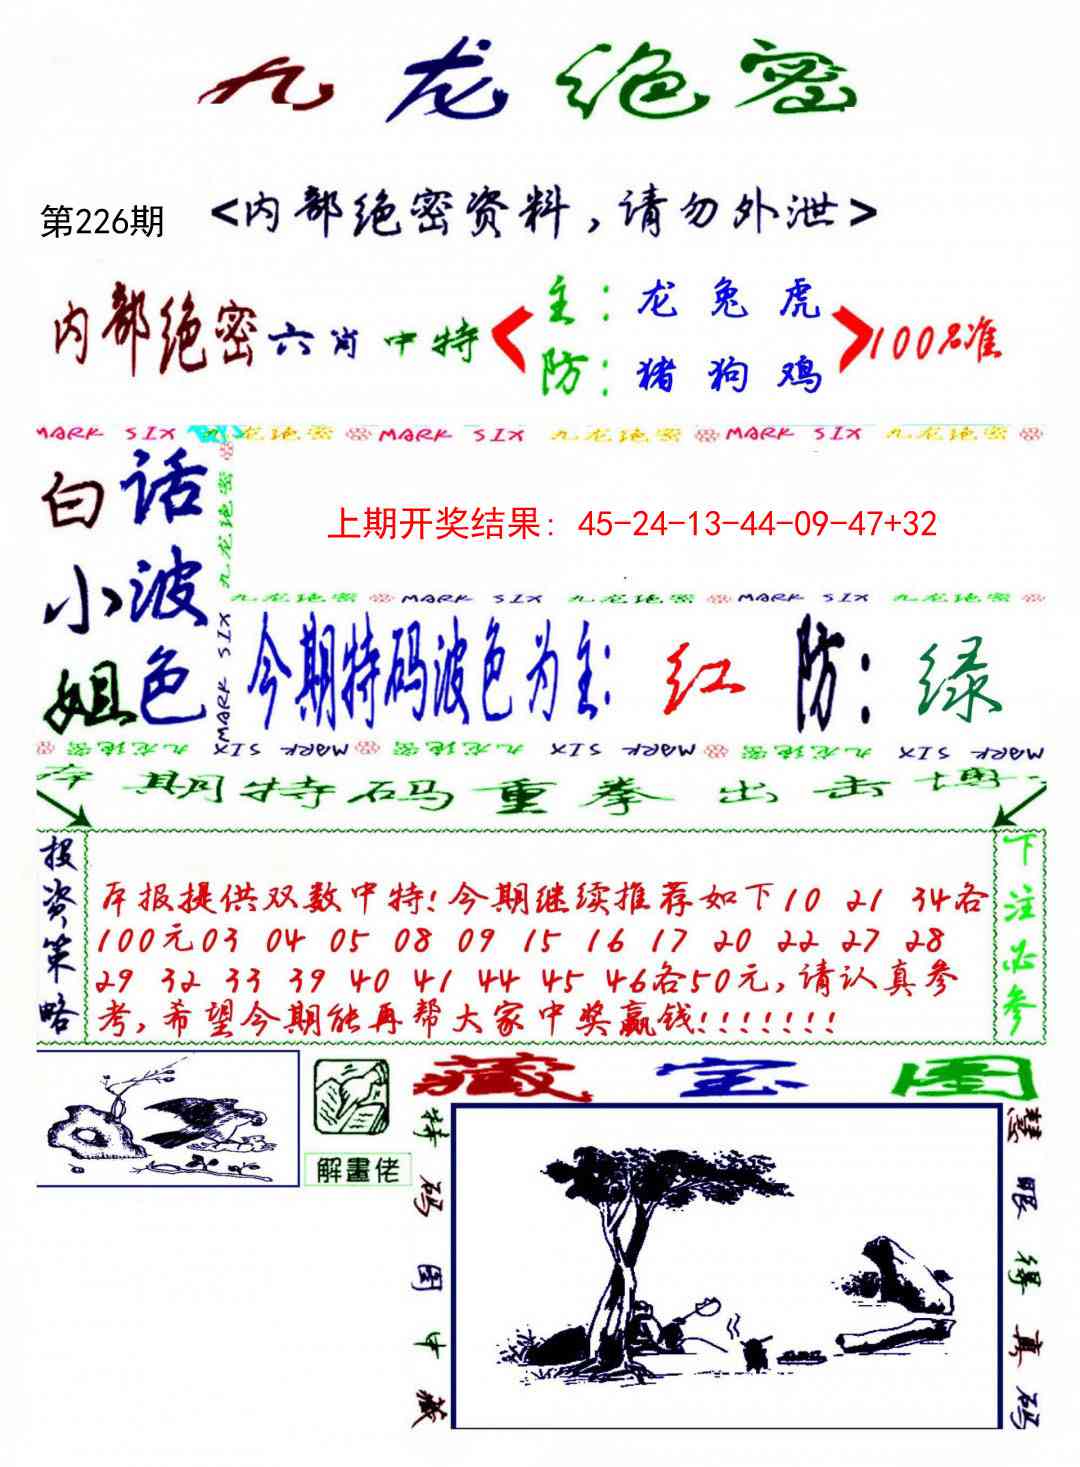 九龙绝密
第226期
<内部绝密资料,请勿外泄>
内部绝密六肖中特
主:龙 兔 虎
防:猪 狗 鸡
100%准
MARK SIX 九龙绝密 MARK SIX 九龙绝密 MARK SIX 九龙绝密
白小姐
话波色
九龙绝密
MARK SIX
上期开奖结果: 45-24-13-44-09-47+32
九龙绝密 MARK SIX 九龙绝密 MARK SIX 九龙绝密
今期特码波色为主: 红 防: 绿
九龙绝密 MARK SIX 九龙绝密 MARK SIX 九龙绝密 MARK SIX
本期特码重拳出击博
投资策略
本报提供双数中特!今期继续推荐如下10 21 34各
100元03 04 05 08 09 15 16 17 20 22 27 28
29 32 33 39 40 41 44 45 46各50元,请认真参
考,希望今期能再帮大家中奖赢钱!!!!!!!
下注必参
解畫佬
藏宝图
特码图中藏
慧眼得真码